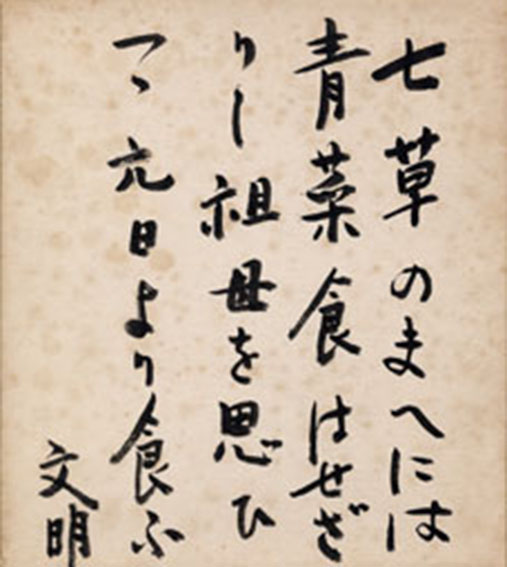 七草のまへには
青菜食はせざ
りし祖母を思ひ
つゝ元日より食ふ
文明